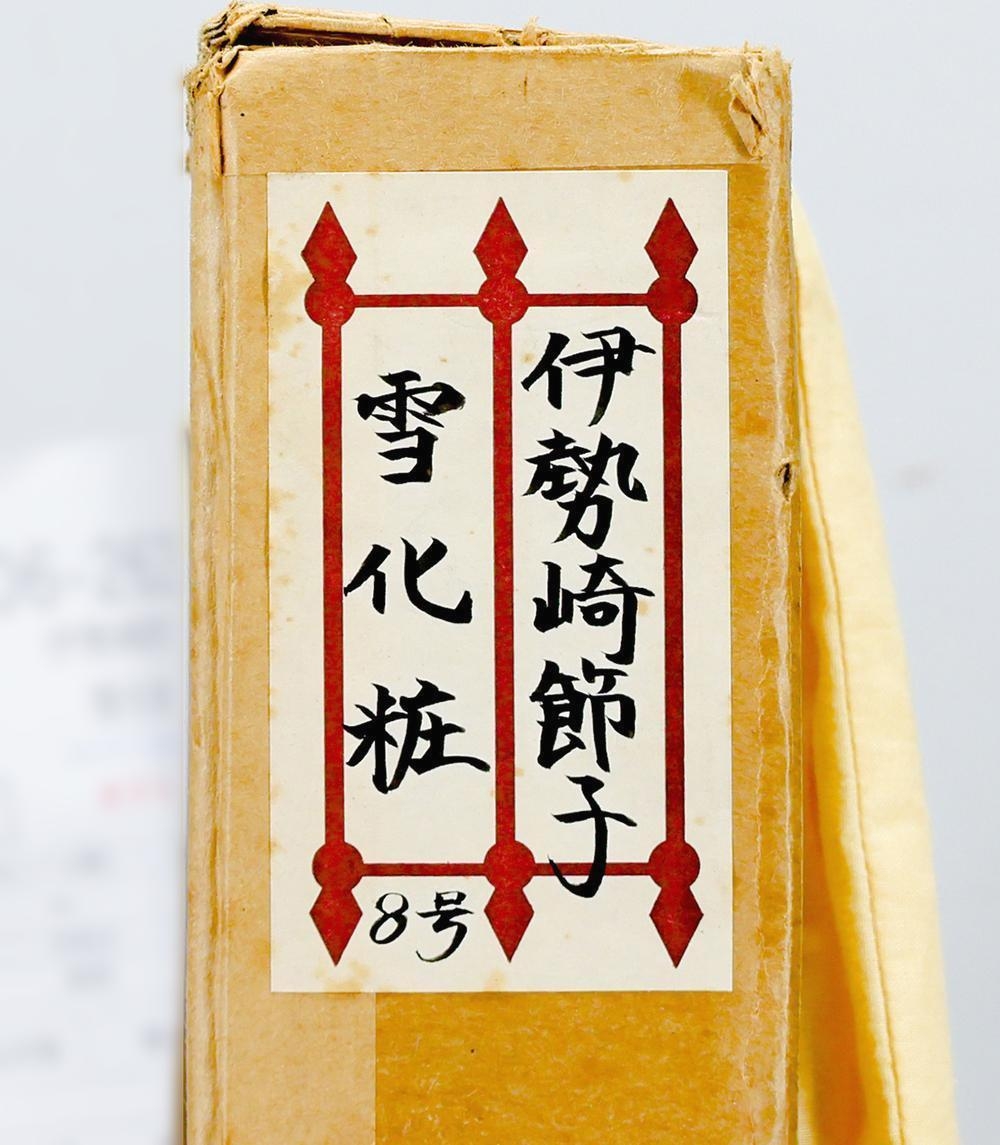 伊勢崎節子
雪化粧
8号